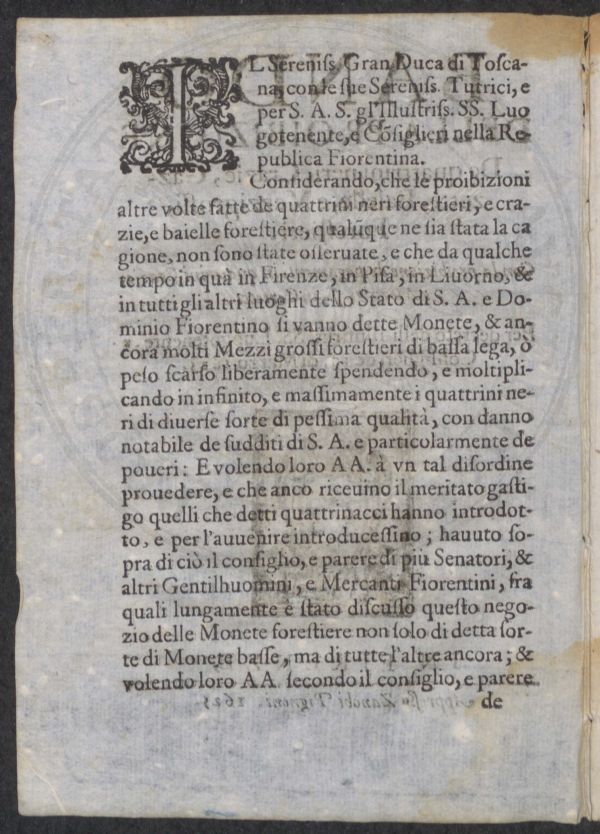 IL Sereniss. Gran Duca di Tosca-
na, con le sue Sereniss. Tutrici, e
per S. A. S. gl'Illustriss. SS. Luo
gotenente, e Cõsiglieri nella Re-
publica Fiorentina.
Considerando, che le proibizioni
altre volte fatte de quattrini neri forestieri, e cra-
zie, e baielle forestiere, qualũque ne sia stata la ca
gione, non sono state osseruate, e che da qualche
tempo in quà in Firenze, in Pisa, in Liuorno, &
in tutti gli altri luoghi dello Stato di S. A. e Do-
minio Fiorentino si vanno dette Monete, & an-
cora molti Mezzi grossi forestieri di bassa lega, ò
peso scarso liberamente spendendo, e moltipli-
cando in infinito, e massimamente i quattrini ne-
ri di diuerse sorte di pessima qualità, con danno
notabile de sudditi di S. A. e particolarmente de
poueri: E volendo loro A A. à vn tal disordine
prouedere, e che anco riceuino il meritato gasti-
go quelli che detti quattrinacci hanno introdot-
to, e per l'auuenire introducessino; hauuto so-
pra di ciò il consiglio, e parere di più Senatori, &
altri Gentilhuomini, e Mercanti Fiorentini, fra
quali lungamente è stato discusso questo nego-
zio delle Monete forestiere non solo di detta sor-
te di Monete basse, ma di tutte l'altre ancora; &
volendo loro A A. secondo il consiglio, e parere
de